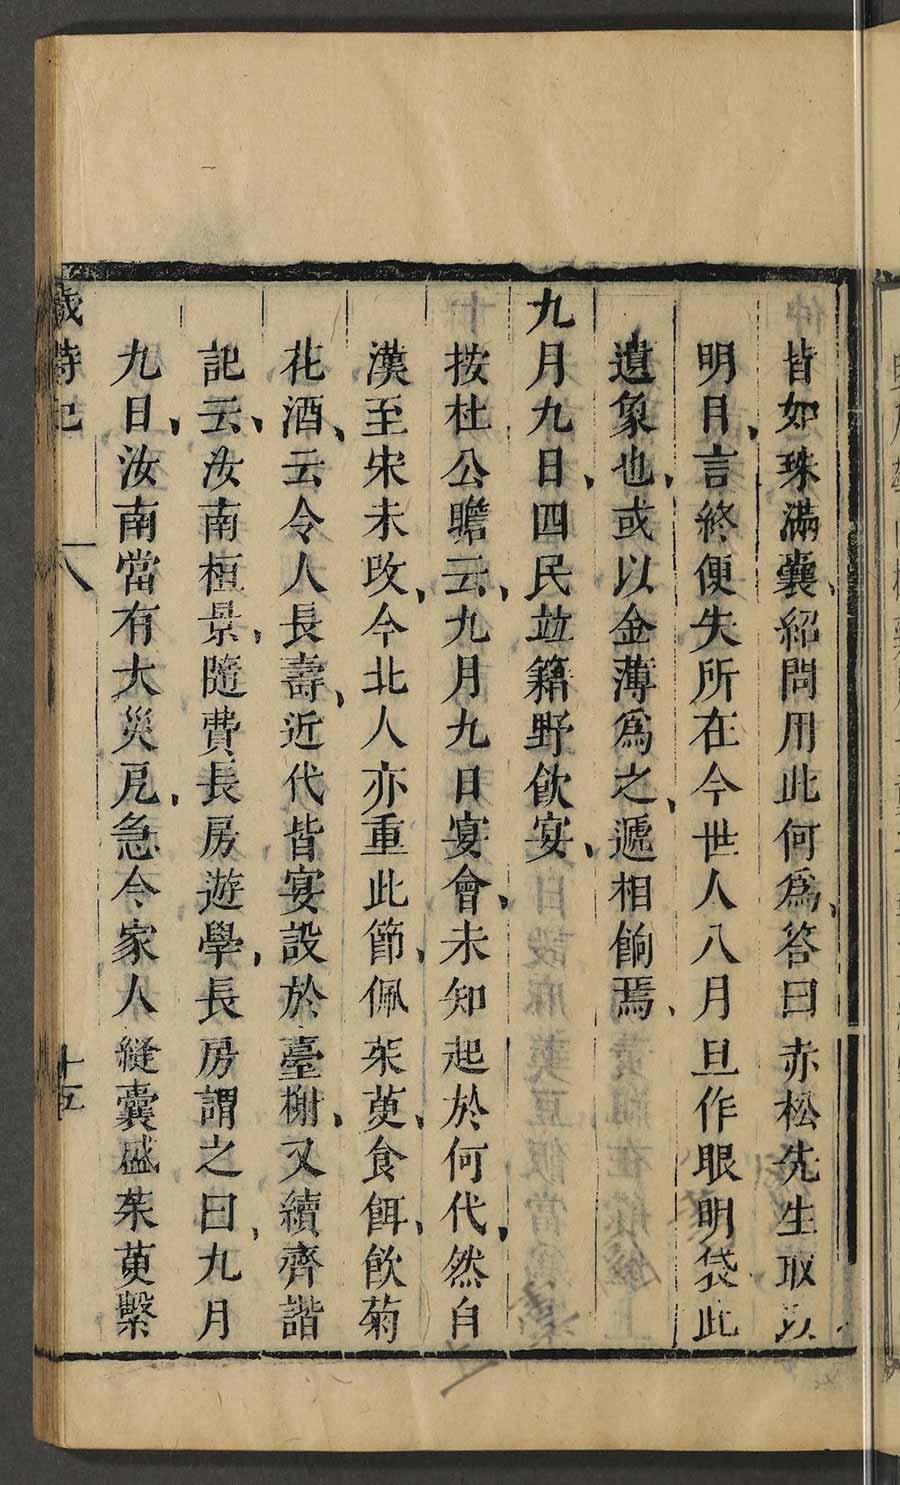 皆如珠滿囊、紹問用此何爲、答曰赤松先生取以
明目、言終便失所在今世人八月旦作眼明袋此
遺象也、或以金薄爲之、遞相餉焉、
九月九日、四民並籍野飲宴、
按杜公瞻云、九月九日宴會、未知起於何代、然自
漢至宋未改、今北人亦重此節、佩茱萸、食餌、飲菊
花酒、云令人長壽、近代皆宴設於臺榭、又續齊諧
記云、汝南桓景、隨費長房遊學、長房謂之曰、九月
九日、汝南當有大災厄、急令家人縫囊盛茱萸繫
歲時記 十五